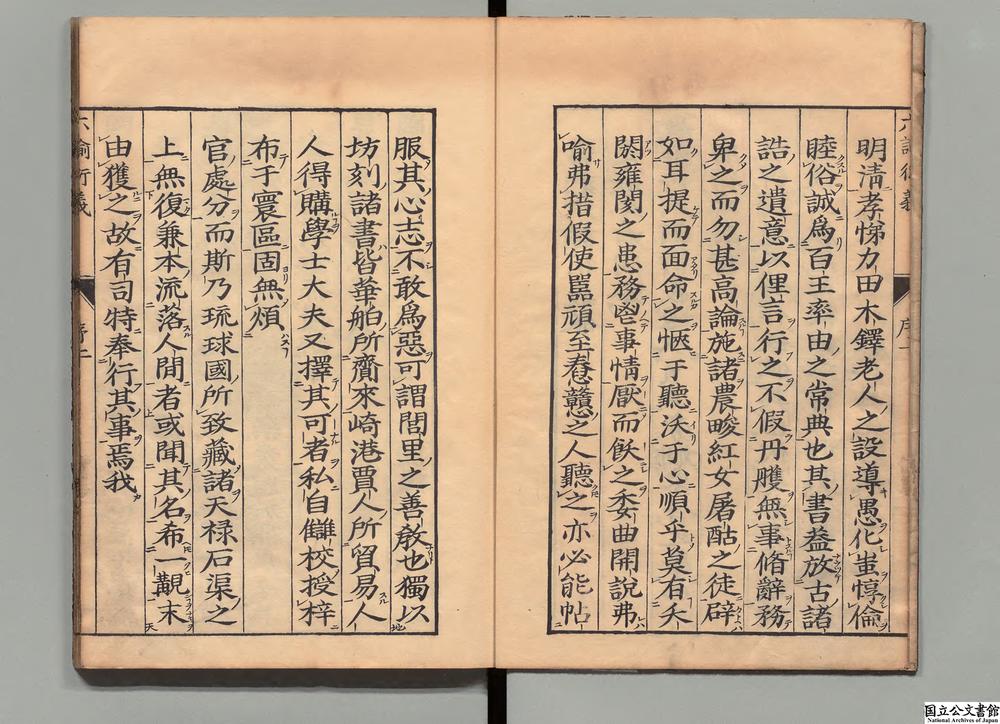 明清孝悌力田木鐸老人之設導愚化蚩惇倫
睦俗誠爲百王率由之常典也其書葢放古諸
誥之遺意以俚言行之不假丹雘無事脩辭務
卑之而勿甚高論施諸農畯紅女屠酤之徒辟
如耳提而面命之愜于聽沃于心順乎莫有夭
閼雍閡之患務凶事情厭而飫之委曲開說弗
喻弗措假使嚚頑至惷戇之人聽之亦必能帖
服其心志不敢爲惡可謂閭里之善敎也獨以
坊刻諸書皆華舶所齎來崎港賈人所貿易人
人得購學士大夫又擇其可者私自讎校授梓
布于寰區固無煩
官處分而斯乃琉球國所致藏諸天禄石渠之
上無復兼本流落人間者或聞其名希一覯末
由獲之故有司特奉行其事焉我
六諭衍義
序二
國立公文書館
National Archives of Japan